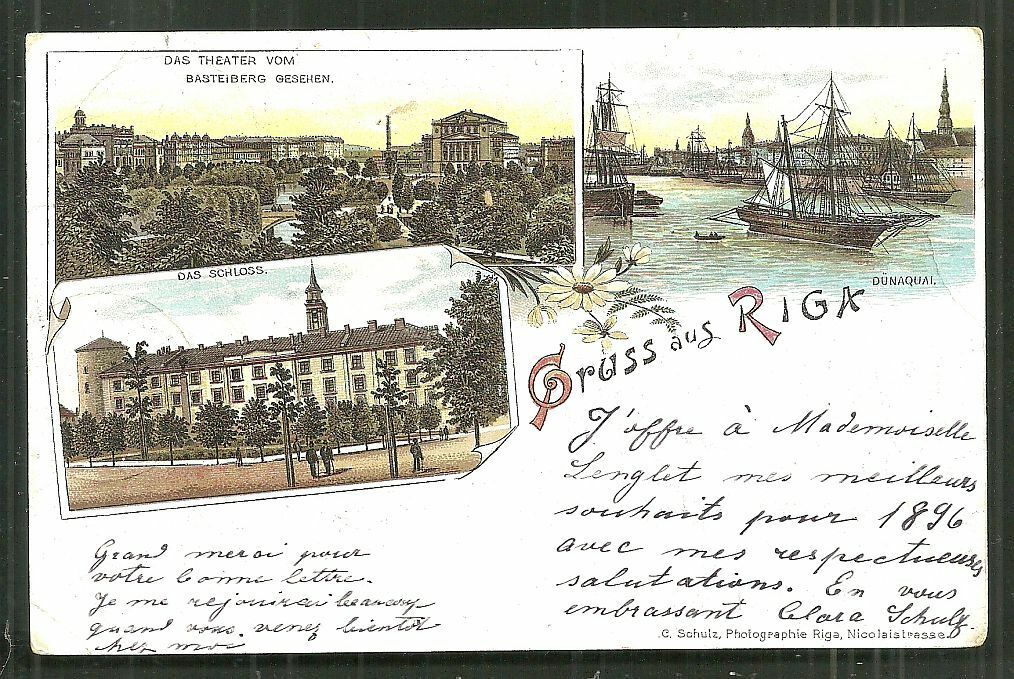 DAS THEATER VOM
BASTEIBERG GESEHEN.
DÜNAQUAI.
DAS SCHLOSS.
Gruss aus RIGA
J'offre à Mademoiselle
Lenglet mes meilleurs
souhaits pour 1896
avec mes respectueuses
salutations. En vous
embrassant Clara Schulz.
Grand merci pour
votre bonne lettre.
Je me rejouirai beaucoup
quand vous venez bientôt
chez moi
C. Schulz, Photographie Riga, Nicolaistrasse.